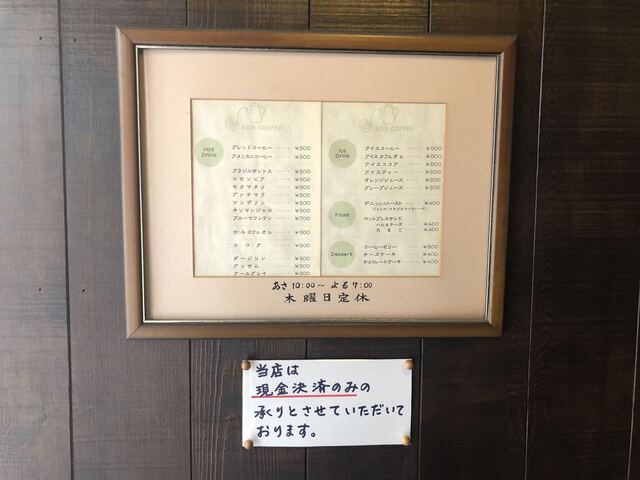 EDA COFFEE
Hot
Drink
ブレンドコーヒー ····· ¥500
アメリカンコーヒー ···· ¥500
ブラジルサントス ····· ¥500
コロンビア ····· ¥500
モカマタリ ····· ¥500
グァテマラ ····· ¥500
マンデリン ····· ¥500
キリマンジャロ ····· ¥500
ブルーマウンテン ····· ¥700
ホットカフェオレ ····· ¥600
ココア ····· ¥500
ダージリン ····· ¥500
アッサム ····· ¥500
アールグレイ ····· ¥500
EDA COFFEE
Ice
Drink
アイスコーヒー ····· ¥500
アイスカフェオレ ····· ¥600
アイスココア ····· ¥500
アイスティー ····· ¥500
オレンジジュース ····· ¥500
グレープジュース ····· ¥500
Food
デニッシュトースト ····· ¥400
ホットプレスサンド
ハム&チーズ ····· ¥400
たまご ····· ¥400
Dessert
コーヒーゼリー ····· ¥500
チーズケーキ ····· ¥400
チョコレートケーキ ···· ¥400
あさ10:00〜よる7:00
木曜日定休
当店は
現金決済のみの
承りとさせていただいて
おります。